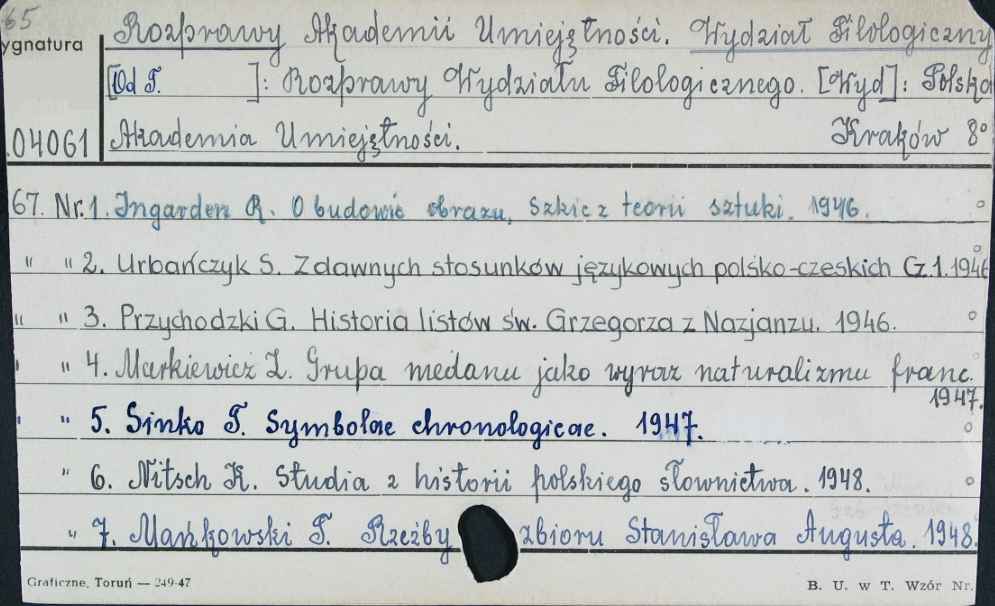 65
ygnatura
Rozprawy Akademii Umiejętności. Wydział Filologiczny
[Od T. ]: Rozprawy Wydziału Filologicznego. [Wyd]: Polska
.04061 Akademia Umiejętności. Kraków 8°
67. Nr. 1. Ingarden R. O budowie obrazu, Szkic z teorii sztuki. 1946.
" " 2. Urbańczyk S. Z dawnych stosunków językowych polsko-czeskich Cz. 1. 1946
" " 3. Przychodzki G. Historia listów św. Grzegorza z Nazjanzu. 1946.
" " 4. Markiewicz Z. Grupa medanu jako wyraz naturalizmu franc.
1947.
" " 5. Sinko T. Symbolae chronologicae. 1947.
" 6. Nitsch K. Studia z historii polskiego słownictwa. 1948.
" 7. Mańkowski T. Rzeźby zbioru Stanisława Augusta. 1948.
Graficzne, Toruń — 249-47
B. U. w T. Wzór Nr.